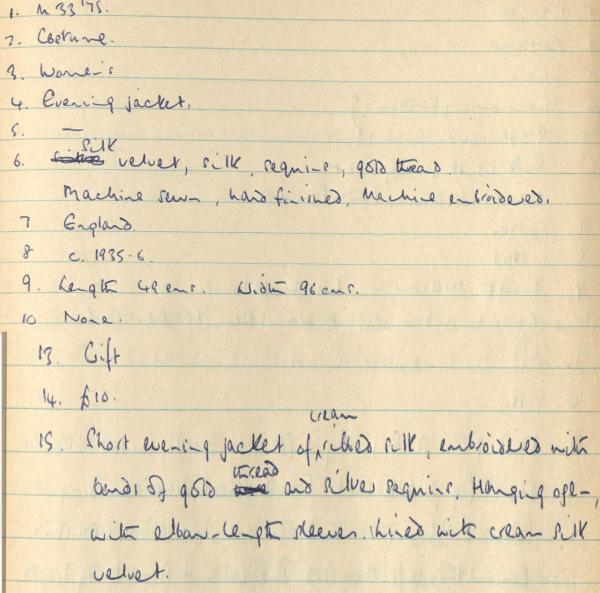 1. M 33'75.
2. Costume.
3. Women's
4. Evening jacket.
5. —
silk
6. velvet, silk, sequins, gold thread.
Machine sewn, hand finished, Machine embroidered.
7 England
8 c. 1935-6.
9. Length 49 cms. Width 96 cms.
10 None.
13. Gift
14. £10.
cream
15. Short evening jacket of ribbed silk, embroidered with
thread
bands of gold and silver sequins. Hanging open,
with elbow-length sleeves. Lined with cream silk
velvet.